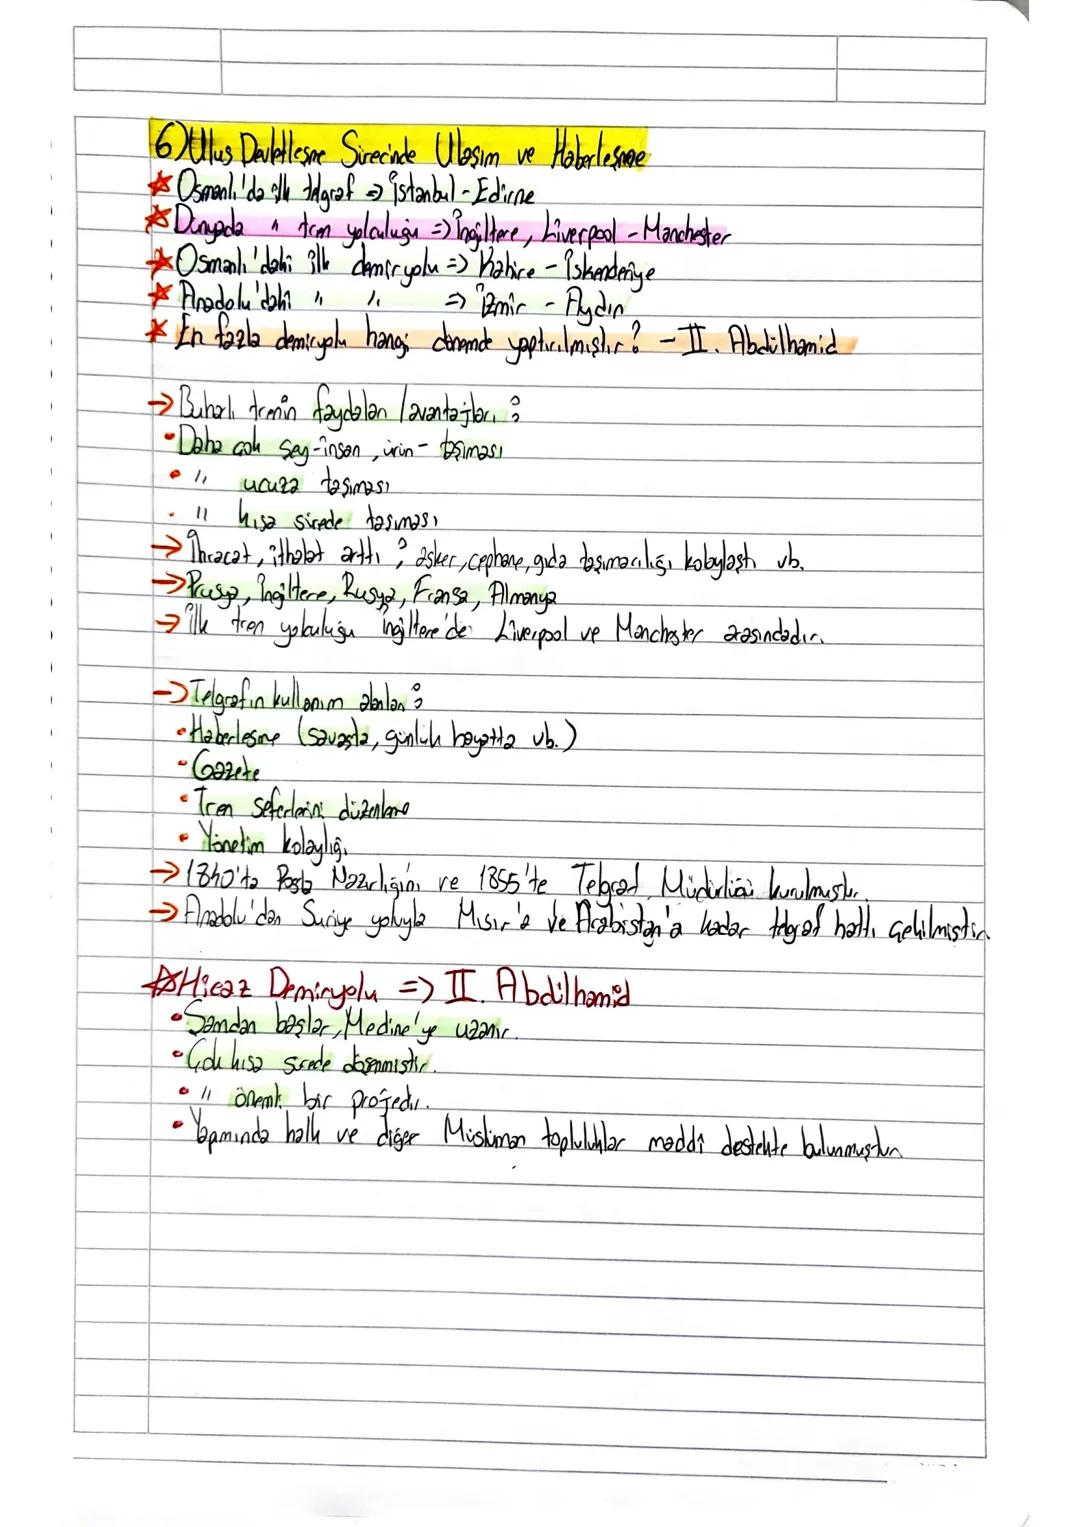 6) Ulus Devletleşme Sürecinde Ulaşım ve Haberleşme
☆ Osmanlı'da ilk telgraf => İstanbul - Edirne
☆ Dünyada " tren yolculuğu => İngiltere, Liverpool - Manchester
☆ Osmanlı'daki ilk demiryolu => Kahire - İskenderiye
☆ Anadolu'daki " " => İzmir - Aydın
☆ En fazla demiryolu hangi dönemde yaptırılmıştır? - II. Abdülhamid
→ Buharlı trenin faydaları / avantajları:
• Daha çok şey -insan, ürün- taşıması
• " ucuza taşıması
• " kısa sürede taşıması
→ İhracat, ithalat arttı; asker, cephane, gıda taşımacılığı kolaylaştı vb.
→ Prusya, İngiltere, Rusya, Fransa, Almanya
→ İlk tren yolculuğu İngiltere'de Liverpool ve Manchester arasındadır.
→ Telgrafın kullanım alanları:
• Haberleşme (savaşta, günlük hayatta vb.)
• Gazete
• Tren seferlerini düzenleme
• Yönetim kolaylığı
→ 1840'ta Posta Nazırlığını ve 1855'te Telgraf Müdürlüğü kurulmuştur.
→ Anadolu'dan Suriye yoluyla Mısır'a ve Arabistan'a kadar telgraf hattı çekilmiştir.
☆ Hicaz Demiryolu => II. Abdülhamid
• Şamdan başlar, Medine'ye uzanır.
• Çok kısa sürede döşenmiştir.
• " önemli bir projedir.
• Yapımında halk ve diğer Müslüman topluluklar maddî destekte bulunmuştur.